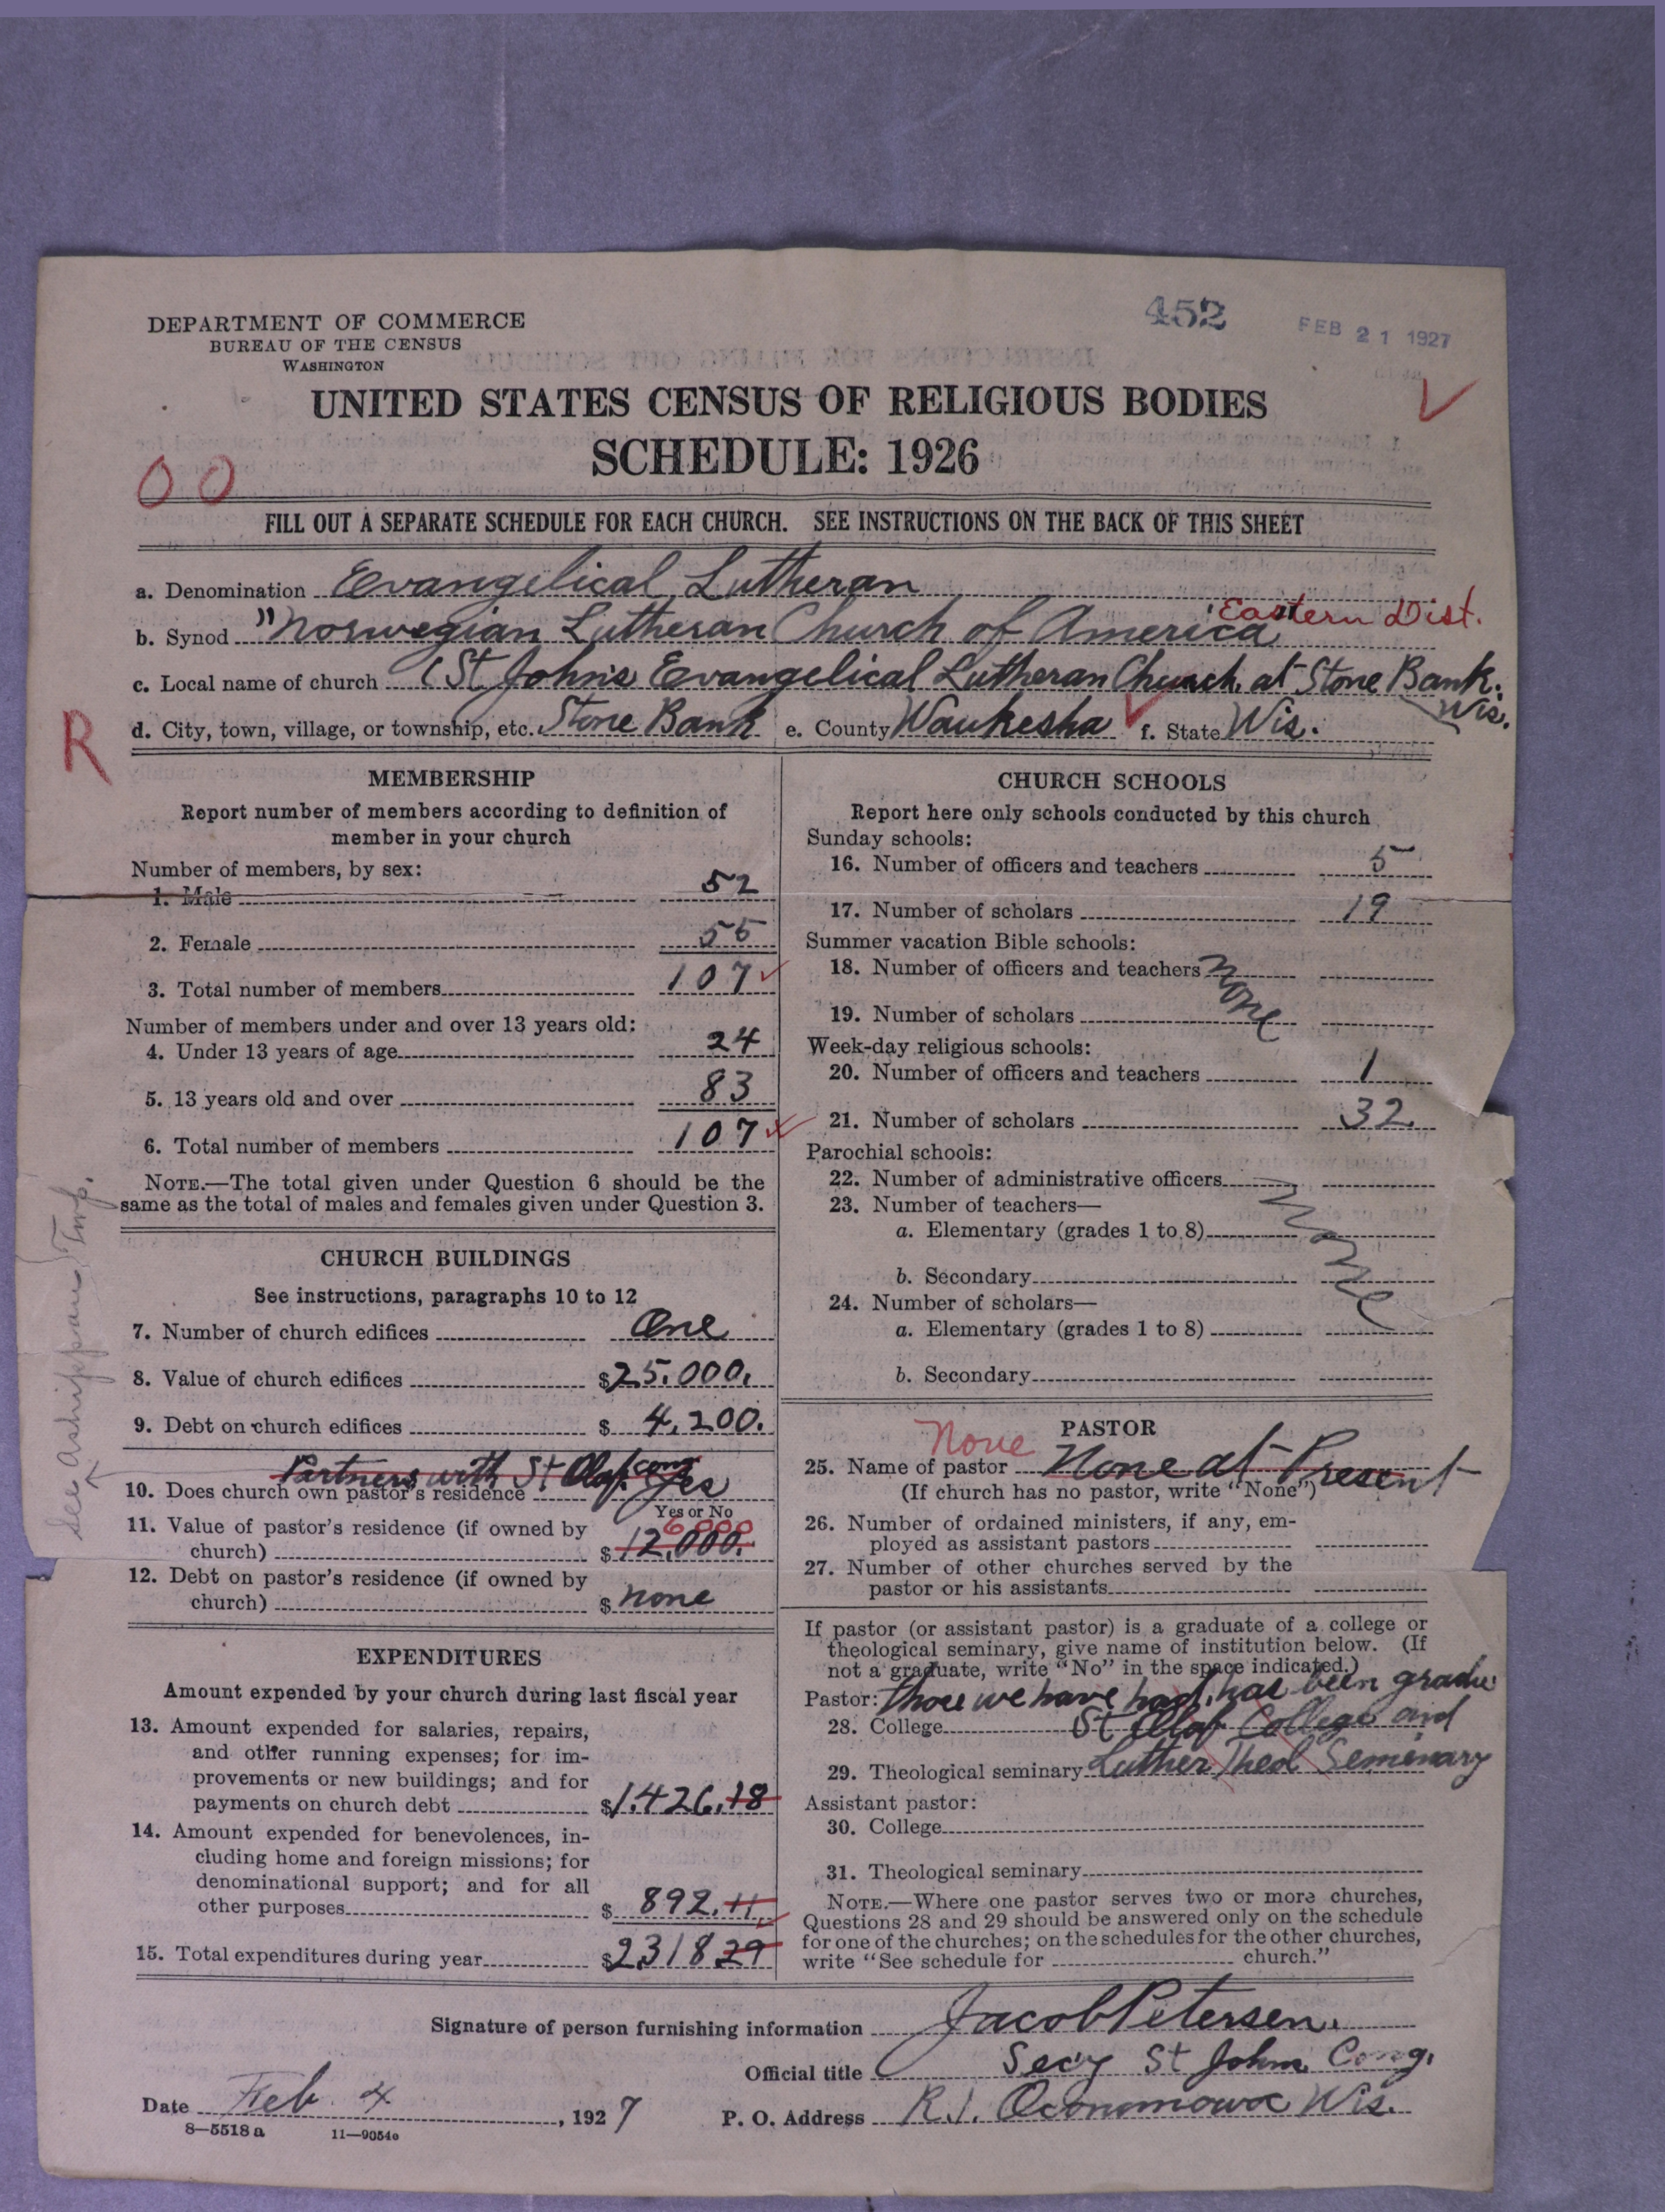 452
FEB 21 1927
DEPARTMENT OF COMMERCE
BUREAU OF THE CENSUS
WASHINGTON
UNITED STATES CENSUS OF RELIGIOUS BODIES
SCHEDULE: 1926
00
FILL OUT A SEPARATE SCHEDULE FOR EACH CHURCH. SEE INSTRUCTIONS ON THE BACK OF THIS SHEET
a. Denomination Evangelical Lutheran
Eastern Dist.
b. Synod "Norwegian Lutheran Church of America"
c. Local name of church (St John's Evangelical Lutheran Church at Stone Bank. Wis.
R
d. City, town, village, or township, etc. Stone Bank e. County Waukesha f. State Wis.
MEMBERSHIP
Report number of members according to definition of
member in your church
Number of members, by sex:
1. Male 52
2. Female 55
3. Total number of members 107
Number of members under and over 13 years old:
4. Under 13 years of age 24
5. 13 years old and over 83
6. Total number of members 107
NOTE.—The total given under Question 6 should be the
same as the total of males and females given under Question 3.
CHURCH BUILDINGS
See instructions, paragraphs 10 to 12
7. Number of church edifices One
8. Value of church edifices $25.000.
9. Debt on church edifices $4,200.
Partners with St Olaf cong
10. Does church own pastor's residence Yes
Yes or No
6000
11. Value of pastor's residence (if owned by
church) $12,000.
12. Debt on pastor's residence (if owned by
church) $none
See Ashippun Twp.
EXPENDITURES
Amount expended by your church during last fiscal year
13. Amount expended for salaries, repairs,
and other running expenses; for im-
provements or new buildings; and for
payments on church debt $1.426.18
14. Amount expended for benevolences, in-
cluding home and foreign missions; for
denominational support; and for all
other purposes $892.11
15. Total expenditures during year $2318 29
CHURCH SCHOOLS
Report here only schools conducted by this church
Sunday schools:
16. Number of officers and teachers 5
17. Number of scholars 19
Summer vacation Bible schools:
18. Number of officers and teachers None
19. Number of scholars
Week-day religious schools:
20. Number of officers and teachers 1
21. Number of scholars 32
Parochial schools:
22. Number of administrative officers None
23. Number of teachers—
a. Elementary (grades 1 to 8)
b. Secondary
24. Number of scholars—
a. Elementary (grades 1 to 8)
b. Secondary
PASTOR
None
25. Name of pastor None at Present
(If church has no pastor, write "None")
26. Number of ordained ministers, if any, em-
ployed as assistant pastors
27. Number of other churches served by the
pastor or his assistants
If pastor (or assistant pastor) is a graduate of a college or
theological seminary, give name of institution below. (If
not a graduate, write "No" in the space indicated.)
Pastor: those we have had, has been gradu
28. College St Olaf College and
29. Theological seminary Luther Theol Semenary
Assistant pastor:
30. College
31. Theological seminary
NOTE.—Where one pastor serves two or more churches,
Questions 28 and 29 should be answered only on the schedule
for one of the churches; on the schedules for the other churches,
write "See schedule for church."
Signature of person furnishing information Jacob Petersen.
Official title Sec'y St John Cong.
Date Feb. 4, 1927 P. O. Address R.1. Oconomowoc Wis.
8—5518a 11—9054e